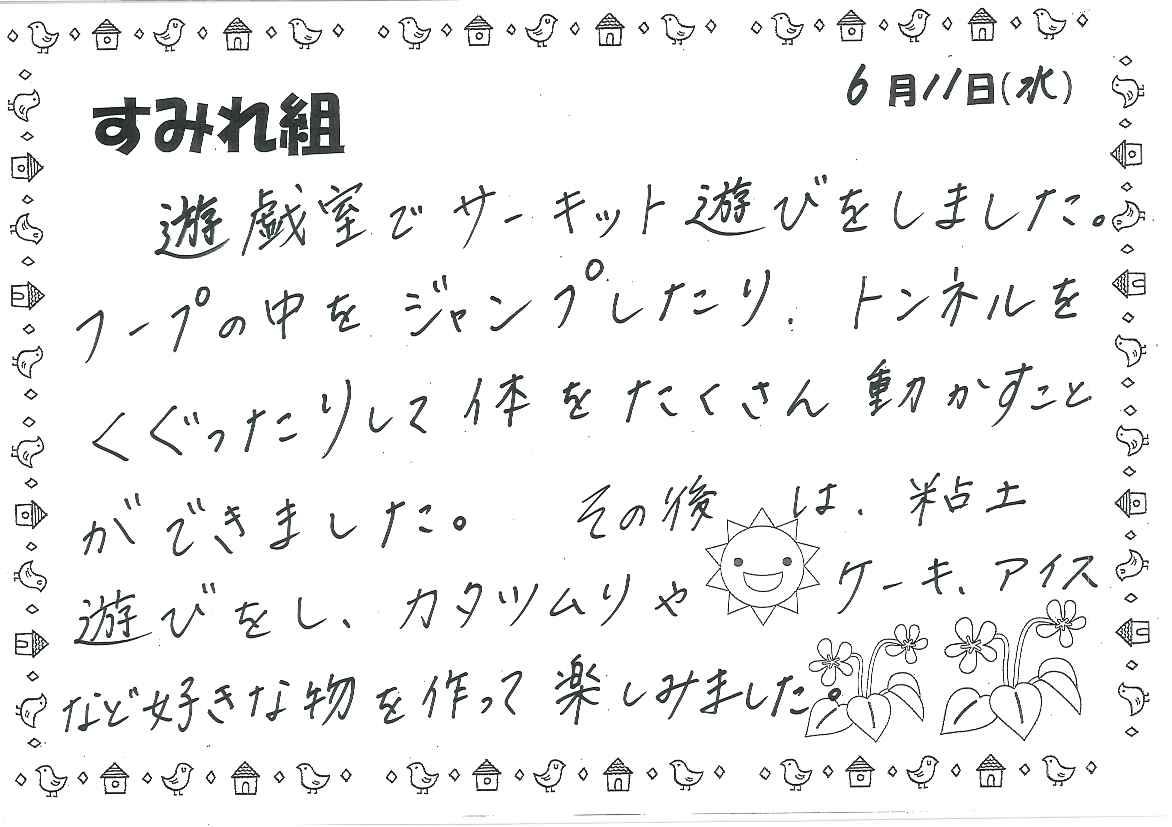 6月11日(水)
すみれ組
遊戯室でサーキット遊びをしました。
フープの中をジャンプしたり、トンネルを
くぐったりして体をたくさん動かすこと
ができました。 その後は、粘土
遊びをし、カタツムリやケーキ、アイス
など好きな物を作って楽しみました。